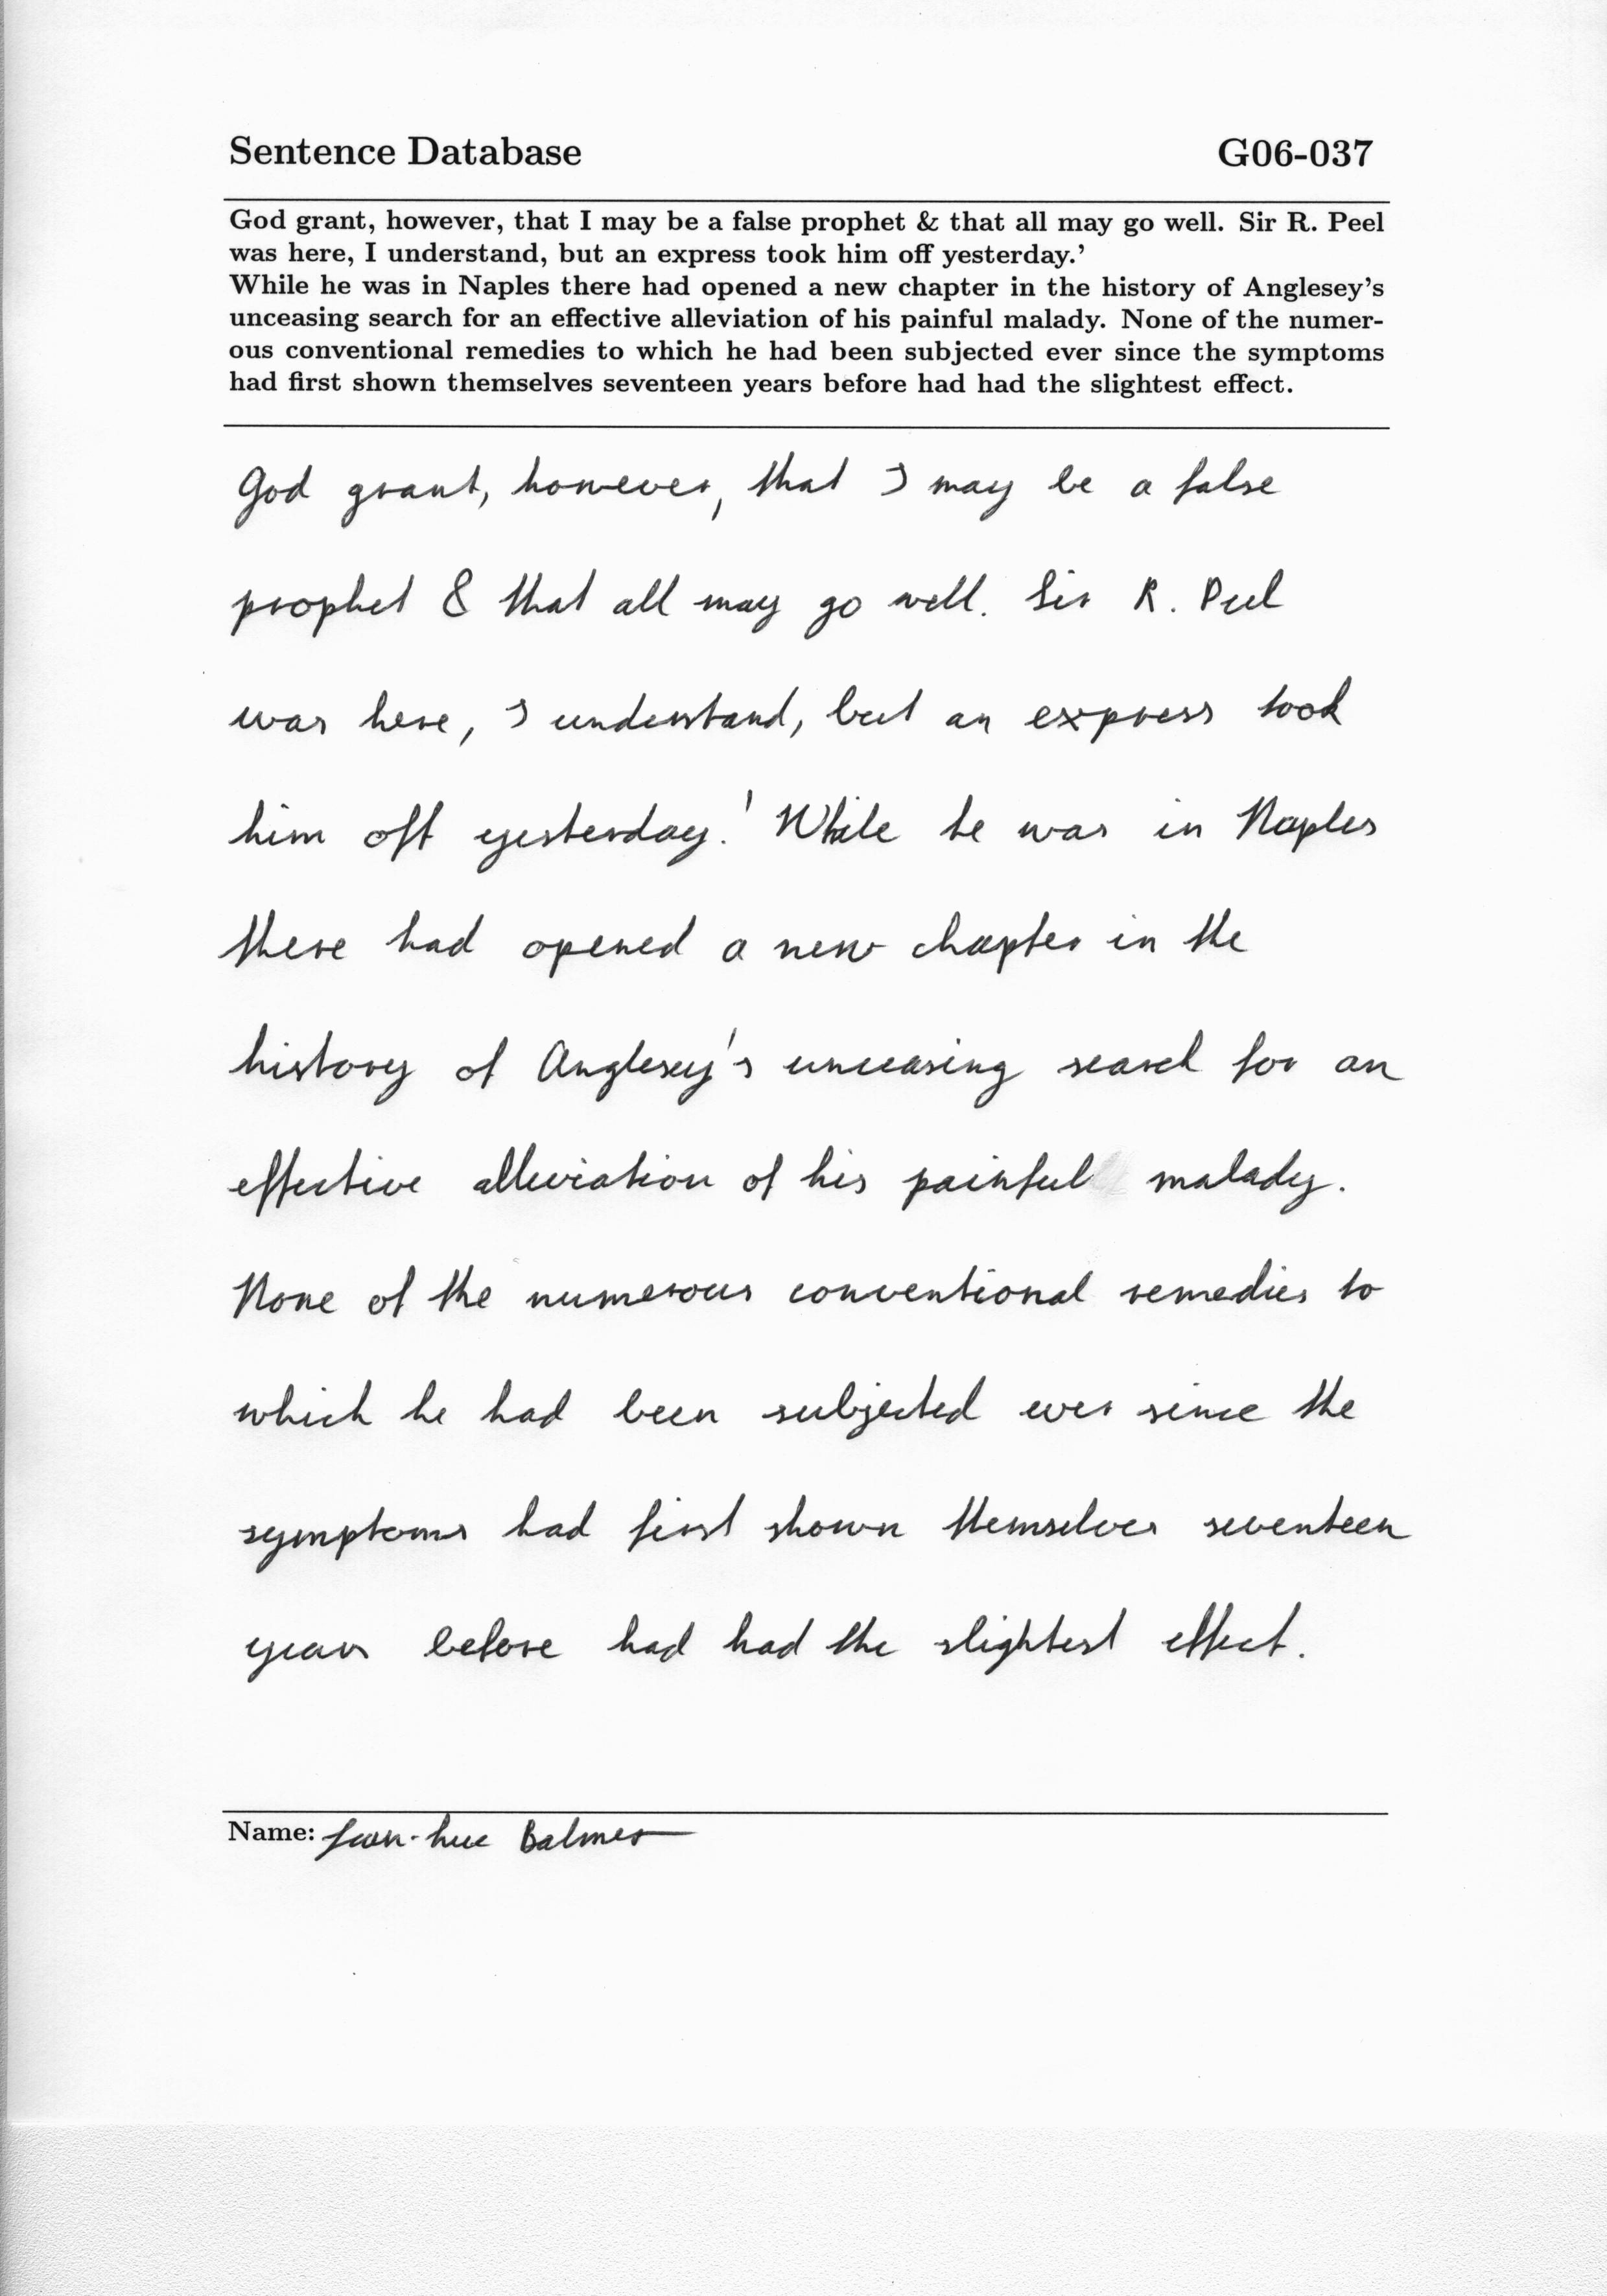 Sentence Database G06-037
God grant, however, that I may be a false prophet & that all may go well. Sir R. Peel
was here, I understand, but an express took him off yesterday.'
While he was in Naples there had opened a new chapter in the history of Anglesey's
unceasing search for an effective alleviation of his painful malady. None of the numer-
ous conventional remedies to which he had been subjected ever since the symptoms
had first shown themselves seventeen years before had had the slightest effect.
God grant, however, that I may be a false
prophet & that all may go well. Sir R. Peel
was here, I understand, but an express took
him off yesterday.' While he was in Naples
there had opened a new chapter in the
history of Anglesey's unceasing search for an
effective alleviation of his painful malady.
None of the numerous conventional remedies to
which he had been subjected ever since the
symptoms had first shown themselves seventeen
years before had had the slightest effect.
Name: Jean-Luc Balmer